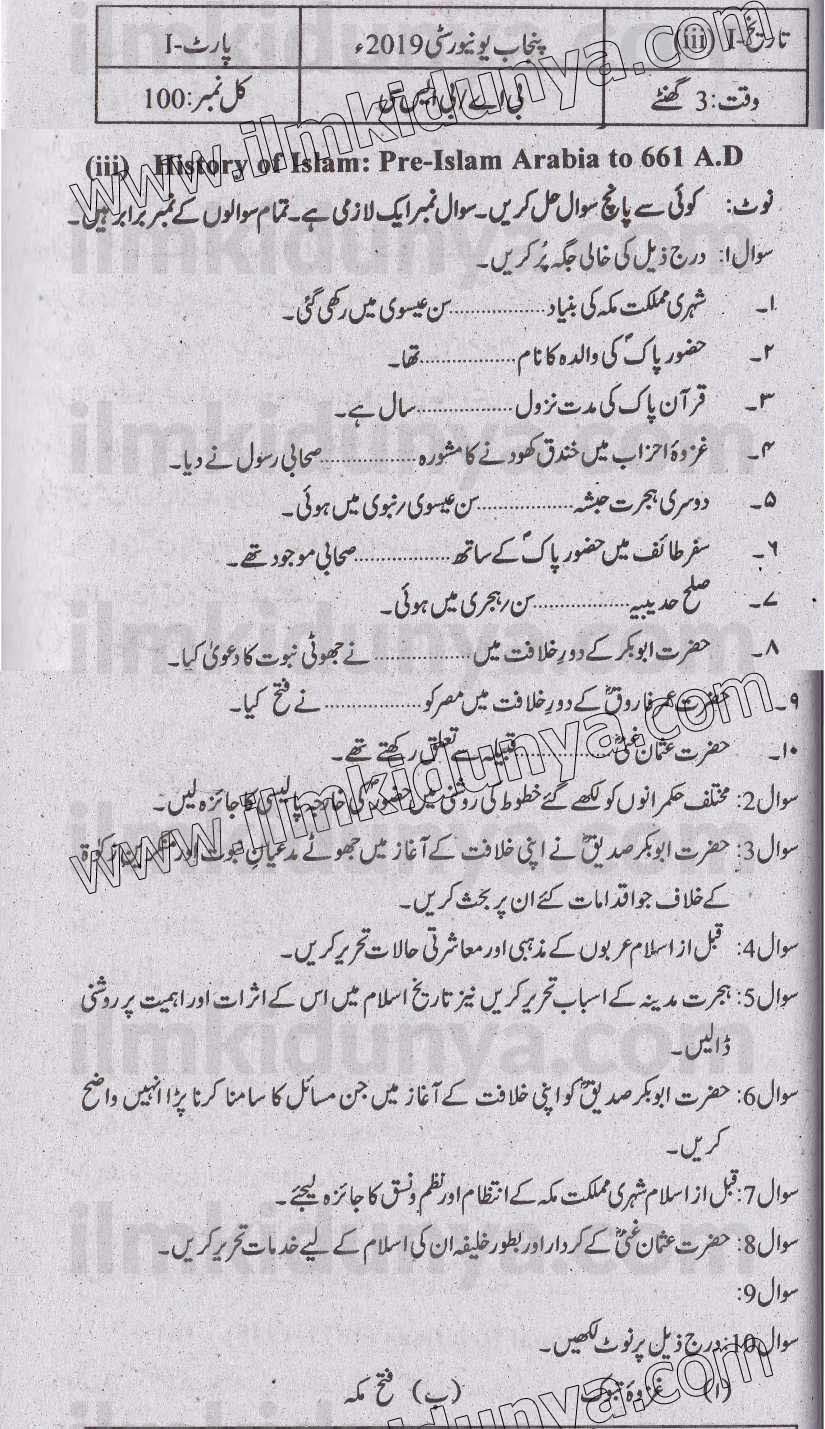 تاریخ-I (iii) پنجاب یونیورسٹی 2019ء پارٹ-I
وقت: 3 گھنٹے بی اے/بی ایس سی کل نمبر: 100
(iii) History of Islam: Pre-Islam Arabia to 661 A.D
نوٹ: کوئی سے پانچ سوال حل کریں۔ سوال نمبر ایک لازمی ہے۔ تمام سوالوں کے نمبر برابر ہیں۔
سوال ۱: درج ذیل کی خالی جگہ پُر کریں۔
۱۔ شہری مملکت مکہ کی بنیاد .................. سن عیسوی میں رکھی گئی۔
۲۔ حضور پاکؐ کی والدہ کا نام .................. تھا۔
۳۔ قرآن پاک کی مدت نزول .................. سال ہے۔
۴۔ غزوۂ احزاب میں خندق کھودنے کا مشورہ .................. صحابی رسول نے دیا۔
۵۔ دوسری ہجرت حبشہ .................. سن عیسوی/نبوی میں ہوئی۔
۶۔ سفر طائف میں حضور پاکؐ کے ساتھ .................. صحابی موجود تھے۔
۷۔ صلح حدیبیہ .................. سن/ہجری میں ہوئی۔
۸۔ حضرت ابوبکر کے دورِ خلافت میں .................. نے جھوٹی نبوت کا دعویٰ کیا۔
۹۔ حضرت عمر فاروقؓ کے دورِ خلافت میں مصر کو .................. نے فتح کیا۔
۱۰۔ حضرت عثمان غنیؓ .................. قبیلہ سے تعلق رکھتے تھے۔
سوال 2: مختلف حکمرانوں کو لکھے گئے خطوط کی روشنی میں حضورؐ کی خارجہ پالیسی کا جائزہ لیں۔
سوال 3: حضرت ابوبکر صدیقؓ نے اپنی خلافت کے آغاز میں جھوٹے مدعیان نبوت اور منکرین زکوٰۃ
کے خلاف جو اقدامات کئے ان پر بحث کریں۔
سوال 4: قبل از اسلام عربوں کے مذہبی اور معاشرتی حالات تحریر کریں۔
سوال 5: ہجرت مدینہ کے اسباب تحریر کریں نیز تاریخ اسلام میں اس کے اثرات اور اہمیت پر روشنی
ڈالیں۔
سوال 6: حضرت ابوبکر صدیقؓ کو اپنی خلافت کے آغاز میں جن مسائل کا سامنا کرنا پڑا انہیں واضح
کریں۔
سوال 7: قبل از اسلام شہری مملکت مکہ کے انتظام اور نظم و نسق کا جائزہ لیجئے۔
سوال 8: حضرت عثمان غنیؓ کے کردار اور بطور خلیفہ ان کی اسلام کے لیے خدمات تحریر کریں۔
سوال 9:
سوال 10: درج ذیل پر نوٹ لکھیں۔
(ا) غزوۂ تبوک (ب) فتح مکہ
www.ilmkidunya.com
www.ilmkidunya.com
www.ilmkidunya.com
ilmkidunya.com
ilmkidunya.com
ilmkidunya.com
ilmkidunya.com
ilmkidunya.com
ilmkidunya.com
ilmkidunya.com